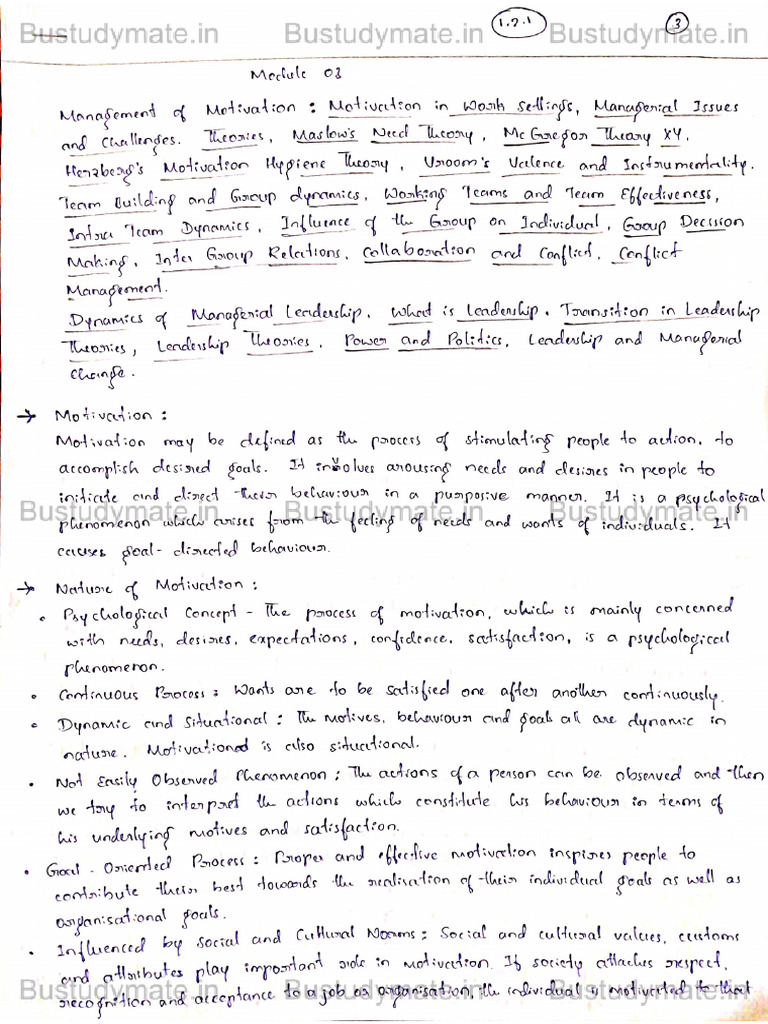 Bustudymate.in Bustudymate.in Bustudymate.in
1.2.1 3
Module 03
Management of Motivation : Motivation in Work settings, Managerial Issues
and Challenges. Theories, Maslow's Need Theory, Mc Gregor Theory XY,
Herzberg's Motivation Hygiene Theory, Vroom's Valence and Instrumentality.
Team Building and Group dynamics, Working Teams and Team Effectiveness,
Intra Team Dynamics, Influence of the Group on Individual, Group Decision
Making, Inter Group Relations, Collaboration and Conflict, Conflict
Management.
Dynamics of Managerial Leadership, What is Leadership, Transition in Leadership
Theories, Leadership Theories, Power and Politics, Leadership and Managerial
Change.
→ Motivation :
Motivation may be defined as the process of stimulating people to action, to
accomplish desired goals. It involves arousing needs and desires in people to
initiate and direct their behaviour in a purposive manner. It is a psychological
Bustudymate.in Bustudymate.in Bustudymate.in
phenomenon which arises from the feeling of needs and wants of individuals. It
causes goal-directed behaviour.
→ Nature of Motivation :
• Psychological Concept - The process of motivation, which is mainly concerned
with needs, desires, expectations, confidence, satisfaction, is a psychological
phenomenon.
• Continuous Process : Wants are to be satisfied one after another continuously.
• Dynamic and Situational : The motives, behaviour and goals all are dynamic in
nature. Motivationed is also situational.
• Not Easily Observed Phenomenon : The actions of a person can be observed and then
we try to interpret the actions which constitute his behaviour in terms of
his underlying motives and satisfaction.
• Goal-Oriented Process : Proper and effective motivation inspires people to
contribute their best towards the realisation of their individual goals as well as
organisational goals.
• Influenced by Social and Cultural Norms : Social and cultural values, customs
and attributes play important role in motivation. If society attaches respect,
Bustudymate.in Bustudymate.in Bustudymate.in
recognition and acceptance to a job or organisation, the individual is motivated to that